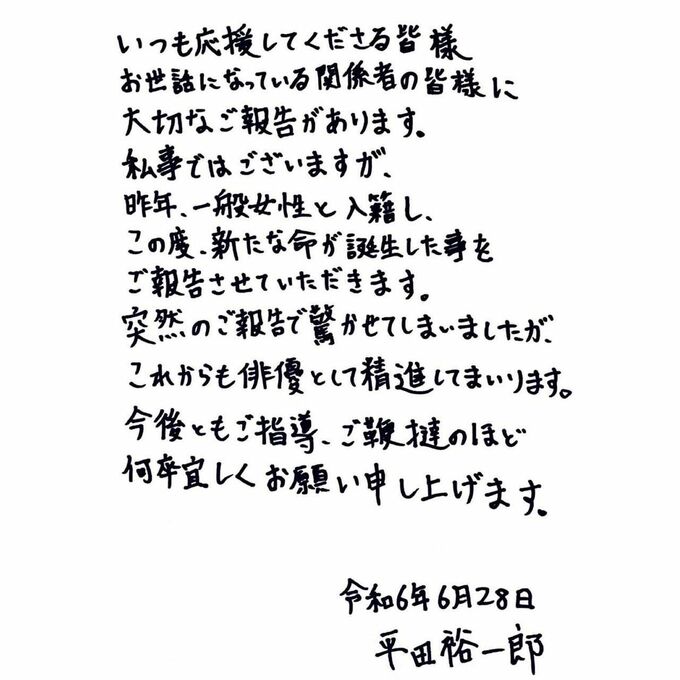 いつも応援してくださる皆様
お世話になっている関係者の皆様に
大切なご報告があります。
私事ではございますが、
昨年、一般女性と入籍し、
この度、新たな命が誕生した事を
ご報告させていただきます。
突然のご報告で驚かせてしまいましたが、
これからも俳優として精進してまいります。
今後ともご指導、ご鞭撻のほど
何卒宜しくお願い申し上げます。
令和6年6月28日
平田裕一郎